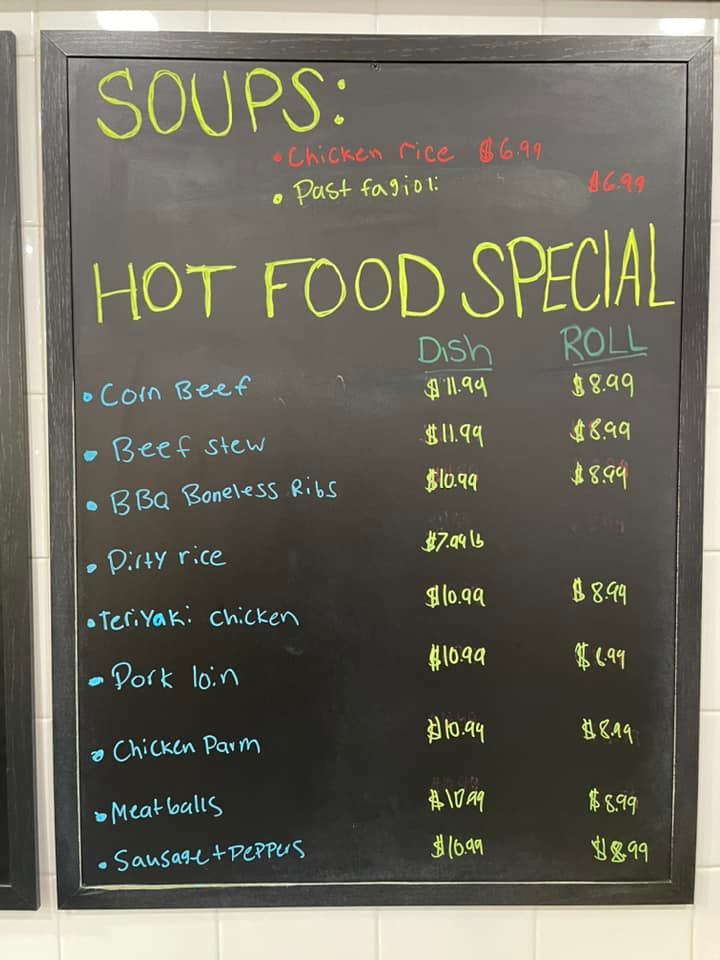 SOUPS:
• Chicken rice $6.99
• Past fagioli $6.99
HOT FOOD SPECIAL
Dish ROLL
• Corn Beef $11.99 $8.99
• Beef stew $11.99 $8.99
• BBQ Boneless Ribs $10.99 $8.99
• Dirty rice $7.99 lb
• Teriyaki chicken $10.99 $8.99
• Pork loin $10.99
• Chicken Parm $10.99 $8.99
• Meatballs $10.99 $8.99
• Sausage + Peppers $10.99 $8.99